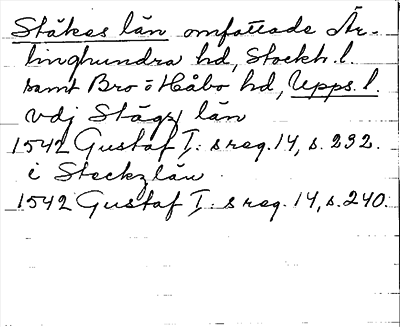 Stäkes län omfattade Är-
linghundra hd, Stockh. l.
samt Bro o Håbo hd, Upps. l.
vdj Stägz län
1542 Gustaf I: s reg. 14, s. 232.
i Steckz län
1542 Gustaf I: s reg. 14, s. 240.